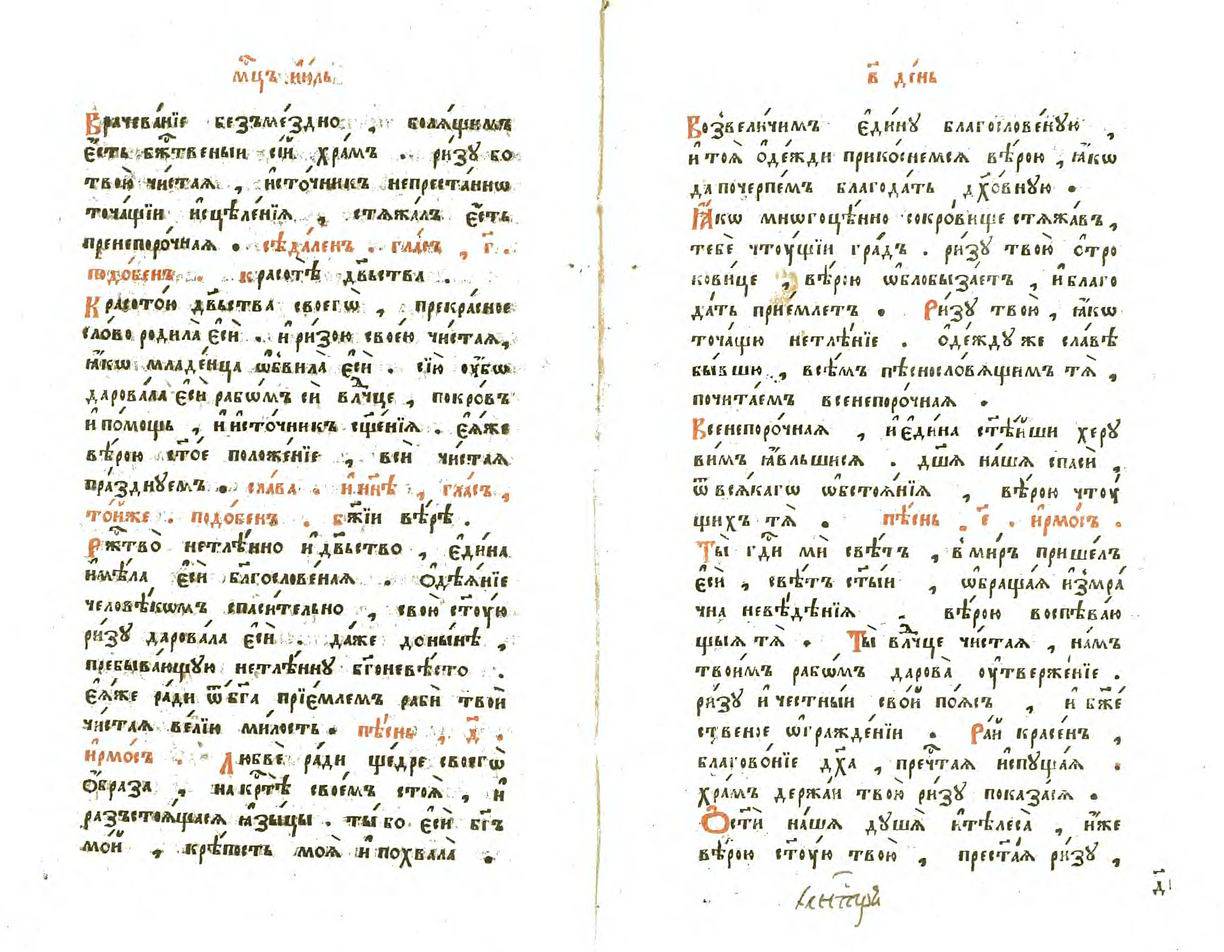 мц҃ъ ию́ль
Врачева́нїе безъме́здно , боля́щимъ
є҆́сть бж҃твеныи се́й хра́мъ . ри́зу бо
твою̀ чи́стая , и҆сто́чникъ непреста́ннѡ
точа́щїи и҆сцѣле́нїя , стяжа́лъ є҆́сть
пренепоро́чная . сѣда́ленъ . гла́съ , г҃ .
подо́бенъ . красотѣ̀ дв҃ьства .
Красото́ю дв҃ьства своегѡ̀ , прекра́сное
сло́во родила̀ є҆сѝ . и҆ ри́зою свое́ю чи́стая ,
ꙗ҆́кѡ младе́нца ѡ҆бвила̀ є҆сѝ . сїю̀ ѹ҆́бѡ
дарова́ла є҆сѝ рабѡ́мъ сѝ влⷣчце , покро́въ
и҆ по́мощь , и҆ и҆сто́чникъ сщ҃е́нїя . є҆я́же
вѣ́рою ст҃ое положе́нїе , всѝ чи́стая
пра́зднуемъ . сла́ва . и҆ ны́нѣ , гла́съ ,
то́йже . подо́бенъ . бж҃їи вѣ́рѣ .
Рж҃тво̀ нетлѣ́нно и҆ дв҃ьство , є҆ди́на
и҆мѣ́ла є҆сѝ бл҃гослове́ная . Ѻ҆дѣя́нїе
человѣ́кѡмъ спаси́тельно , свою̀ ст҃у́ю
ри́зу дарова́ла є҆сѝ . да́же доны́нѣ ,
пребыва́ющую нетлѣ́нну бг҃оневѣ́сто .
є҆я́же ра́ди ѿ бг҃а прїе́млемъ рабѝ твоѝ
чи́стая ве́лїю ми́лость . пѣ́снь , д҃ .
і҆рмо́съ . Любвѐ ра́ди ще́дре своегѡ̀
ѻ҆́браза , на крⷭ҇тѣ̀ свое́мъ стоя̀ , и҆
разъстоя́щаяся ꙗ҆зы́цы . ты́ бо є҆сѝ бг҃ъ
мо́й , крѣ́пость моя̀ и҆ похвала̀ .
в҃ де́нь
Возвели́чимъ є҆ди́ну благослове́ную ,
и҆ тоя̀ ѻ҆де́жди прикосне́мся вѣ́рою , ꙗ҆́кѡ
да почерпе́мъ благода́ть дх҃о́вную .
Ꙗ҆́кѡ мнѡгоцѣ́нно сокро́вище стяжа́въ ,
тебѐ чтоу́щїи гра́дъ . ри́зу твою̀ ѻ҆тро
кови́це , вѣ́рою ѡ҆блобыза́етъ , и҆ благо
да́ть прие́млетъ . Ри́зу твою̀ , ꙗ҆́кѡ
точа́щю нетлѣ́нїе . ѻ҆де́жду же сла́вѣ
бы́вшю , всѣ́мъ пѣснослoвя́щимъ тя̀ ,
почита́емъ всенепоро́чная .
Всенепоро́чная , и҆ є҆ди́на ст҃ѣ́йши херу
ви́мъ ꙗ҆́вльшися . дш҃я на́шя спасѝ ,
ѿ вся́кагѡ ѡ҆бстоя́нїя , вѣ́рою чтоу́
щихъ тя̀ . пѣ́снь є҃ . і҆рмо́съ .
Ты̀ гдⷭ҇и мѝ свѣ́тъ , в ми́ръ прише́лъ
є҆сѝ , свѣ́тъ ст҃ы́и , ѡ҆браща́я и҆змра́
чна невѣ́дѣнїя вѣ́рою воспѣва́ю
щыя тя̀ . Ты̀ влⷣчце чи́стая , на́мъ
твои́мъ рабо́мъ дарова̀ ѹ҆твержє́нїе .
ри́зу и҆ че́стный сво́й по́ясъ , и҆ бж҃е́
ственое ѡ҆гражде́нїи . Ра́й красе́нъ ,
благово́нїе дх҃а , пречⷭ҇тая и҆спуща́я .
хра́мъ держа́й твою̀ ри́зу показа́ся .
Ѻ҆ст҃и на́шя ду́шя и҆ тѣлеса̀ , и҆́же
вѣ́рою ст҃у́ю твою̀ , прест҃а́я ри́зу ,
д҃і